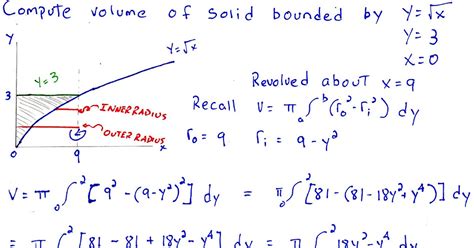 Compute volume of solid bounded by y=√x
y=3
x=0
Y
y=√x
y=3
3
INNER RADIUS
OUTER RADIUS
0
9
x
Revolved about x=9
Recall V=π ₐ∫ᵇ (r₀²-rᵢ²) dy
r₀=9 rᵢ=9-y²
V=π ₀∫² [9²-(9-y²)²] dy = π ₀∫² [81-(81-18y²+y⁴)] dy
=π ∫² [81-81+18y²-y⁴] dy =π ∫² 18y²-y⁴ dy